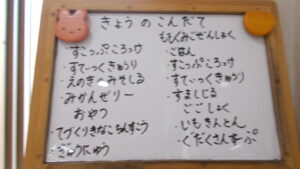 きょうのこんだて
・すこっぷころっけ
・すてぃっくきゅうり
・えのきのみそしる
みかんぜりー
おやつ
・てづくりきなこちんすこう
・ぎゅうにゅう
ももぐみごぜんしょく
・ごはん
・すこっぷころっけ
・すてぃっくきゅうり
・すましじる
ごごしょく
・いもきんとん
・ぐだくさんすーぷ